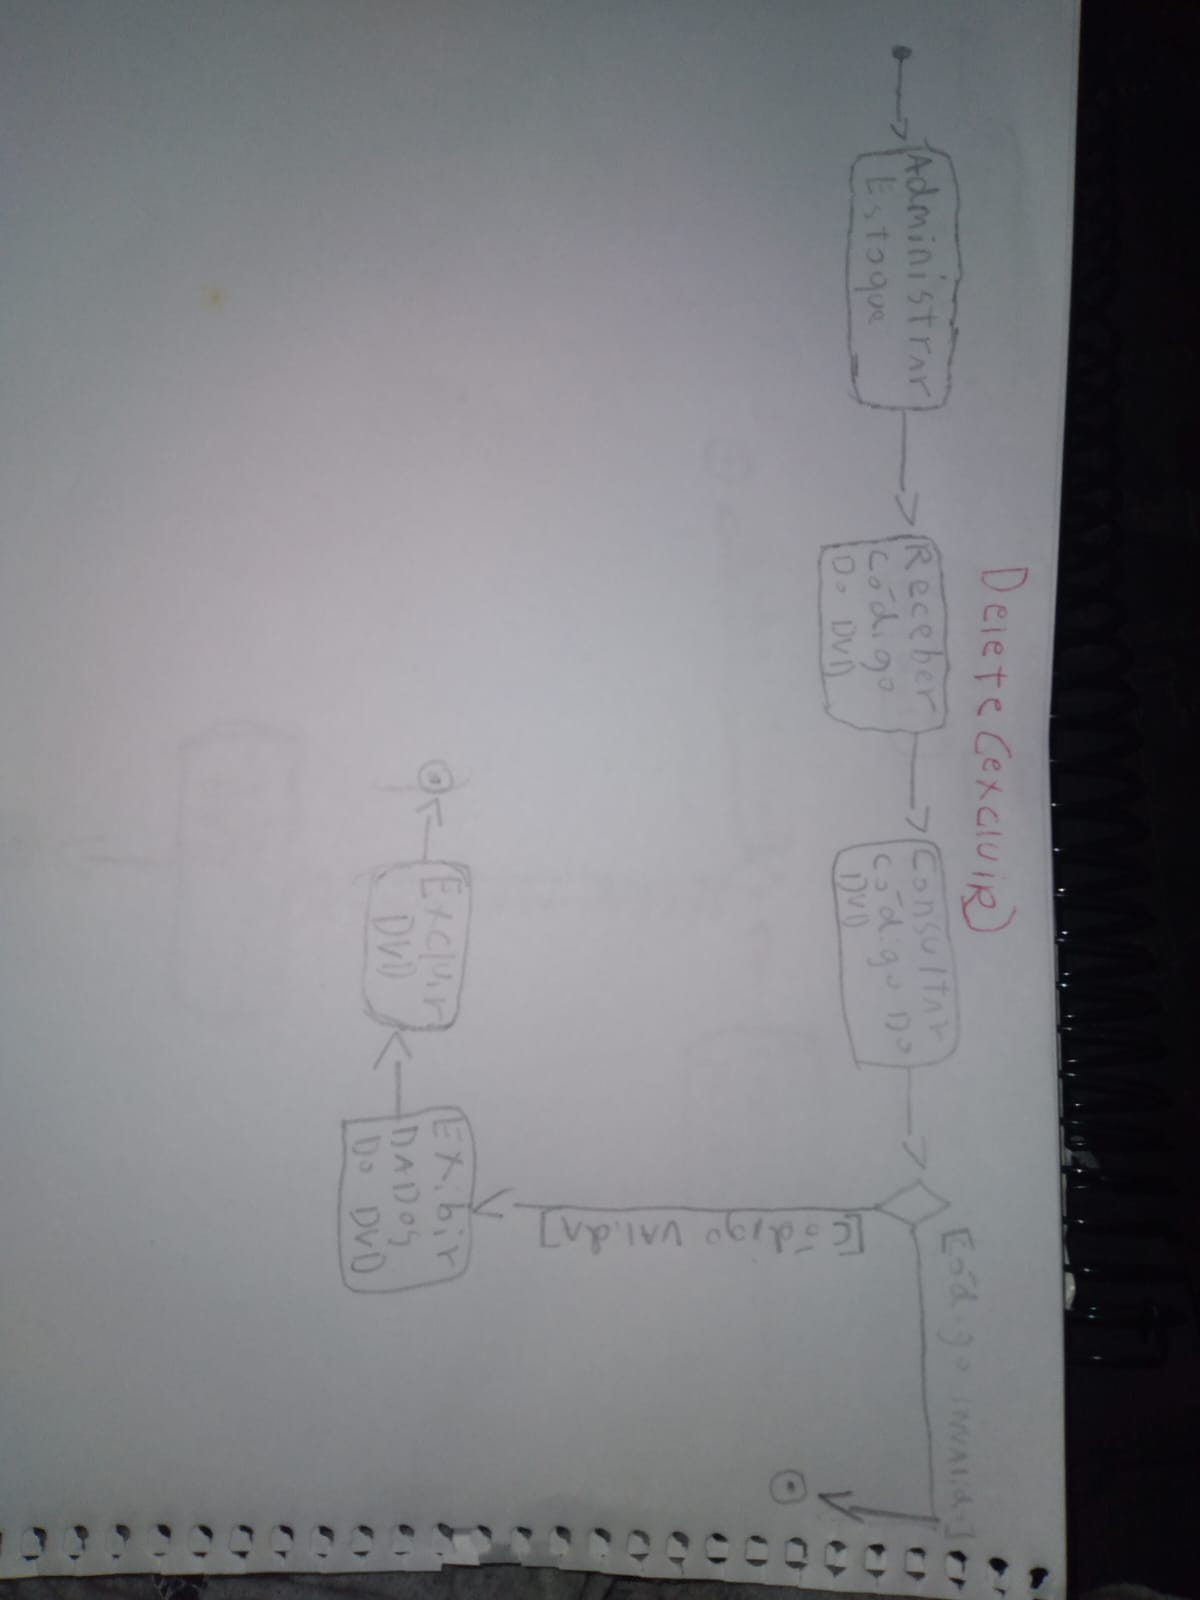 Delete (excluir)
Administrar
Estoque
Receber
código
Do DVD
Consultar
código Do
DVD
[código invalido]
[código valida]
Exibir
DADOS
Do DVD
Excluir
DVD